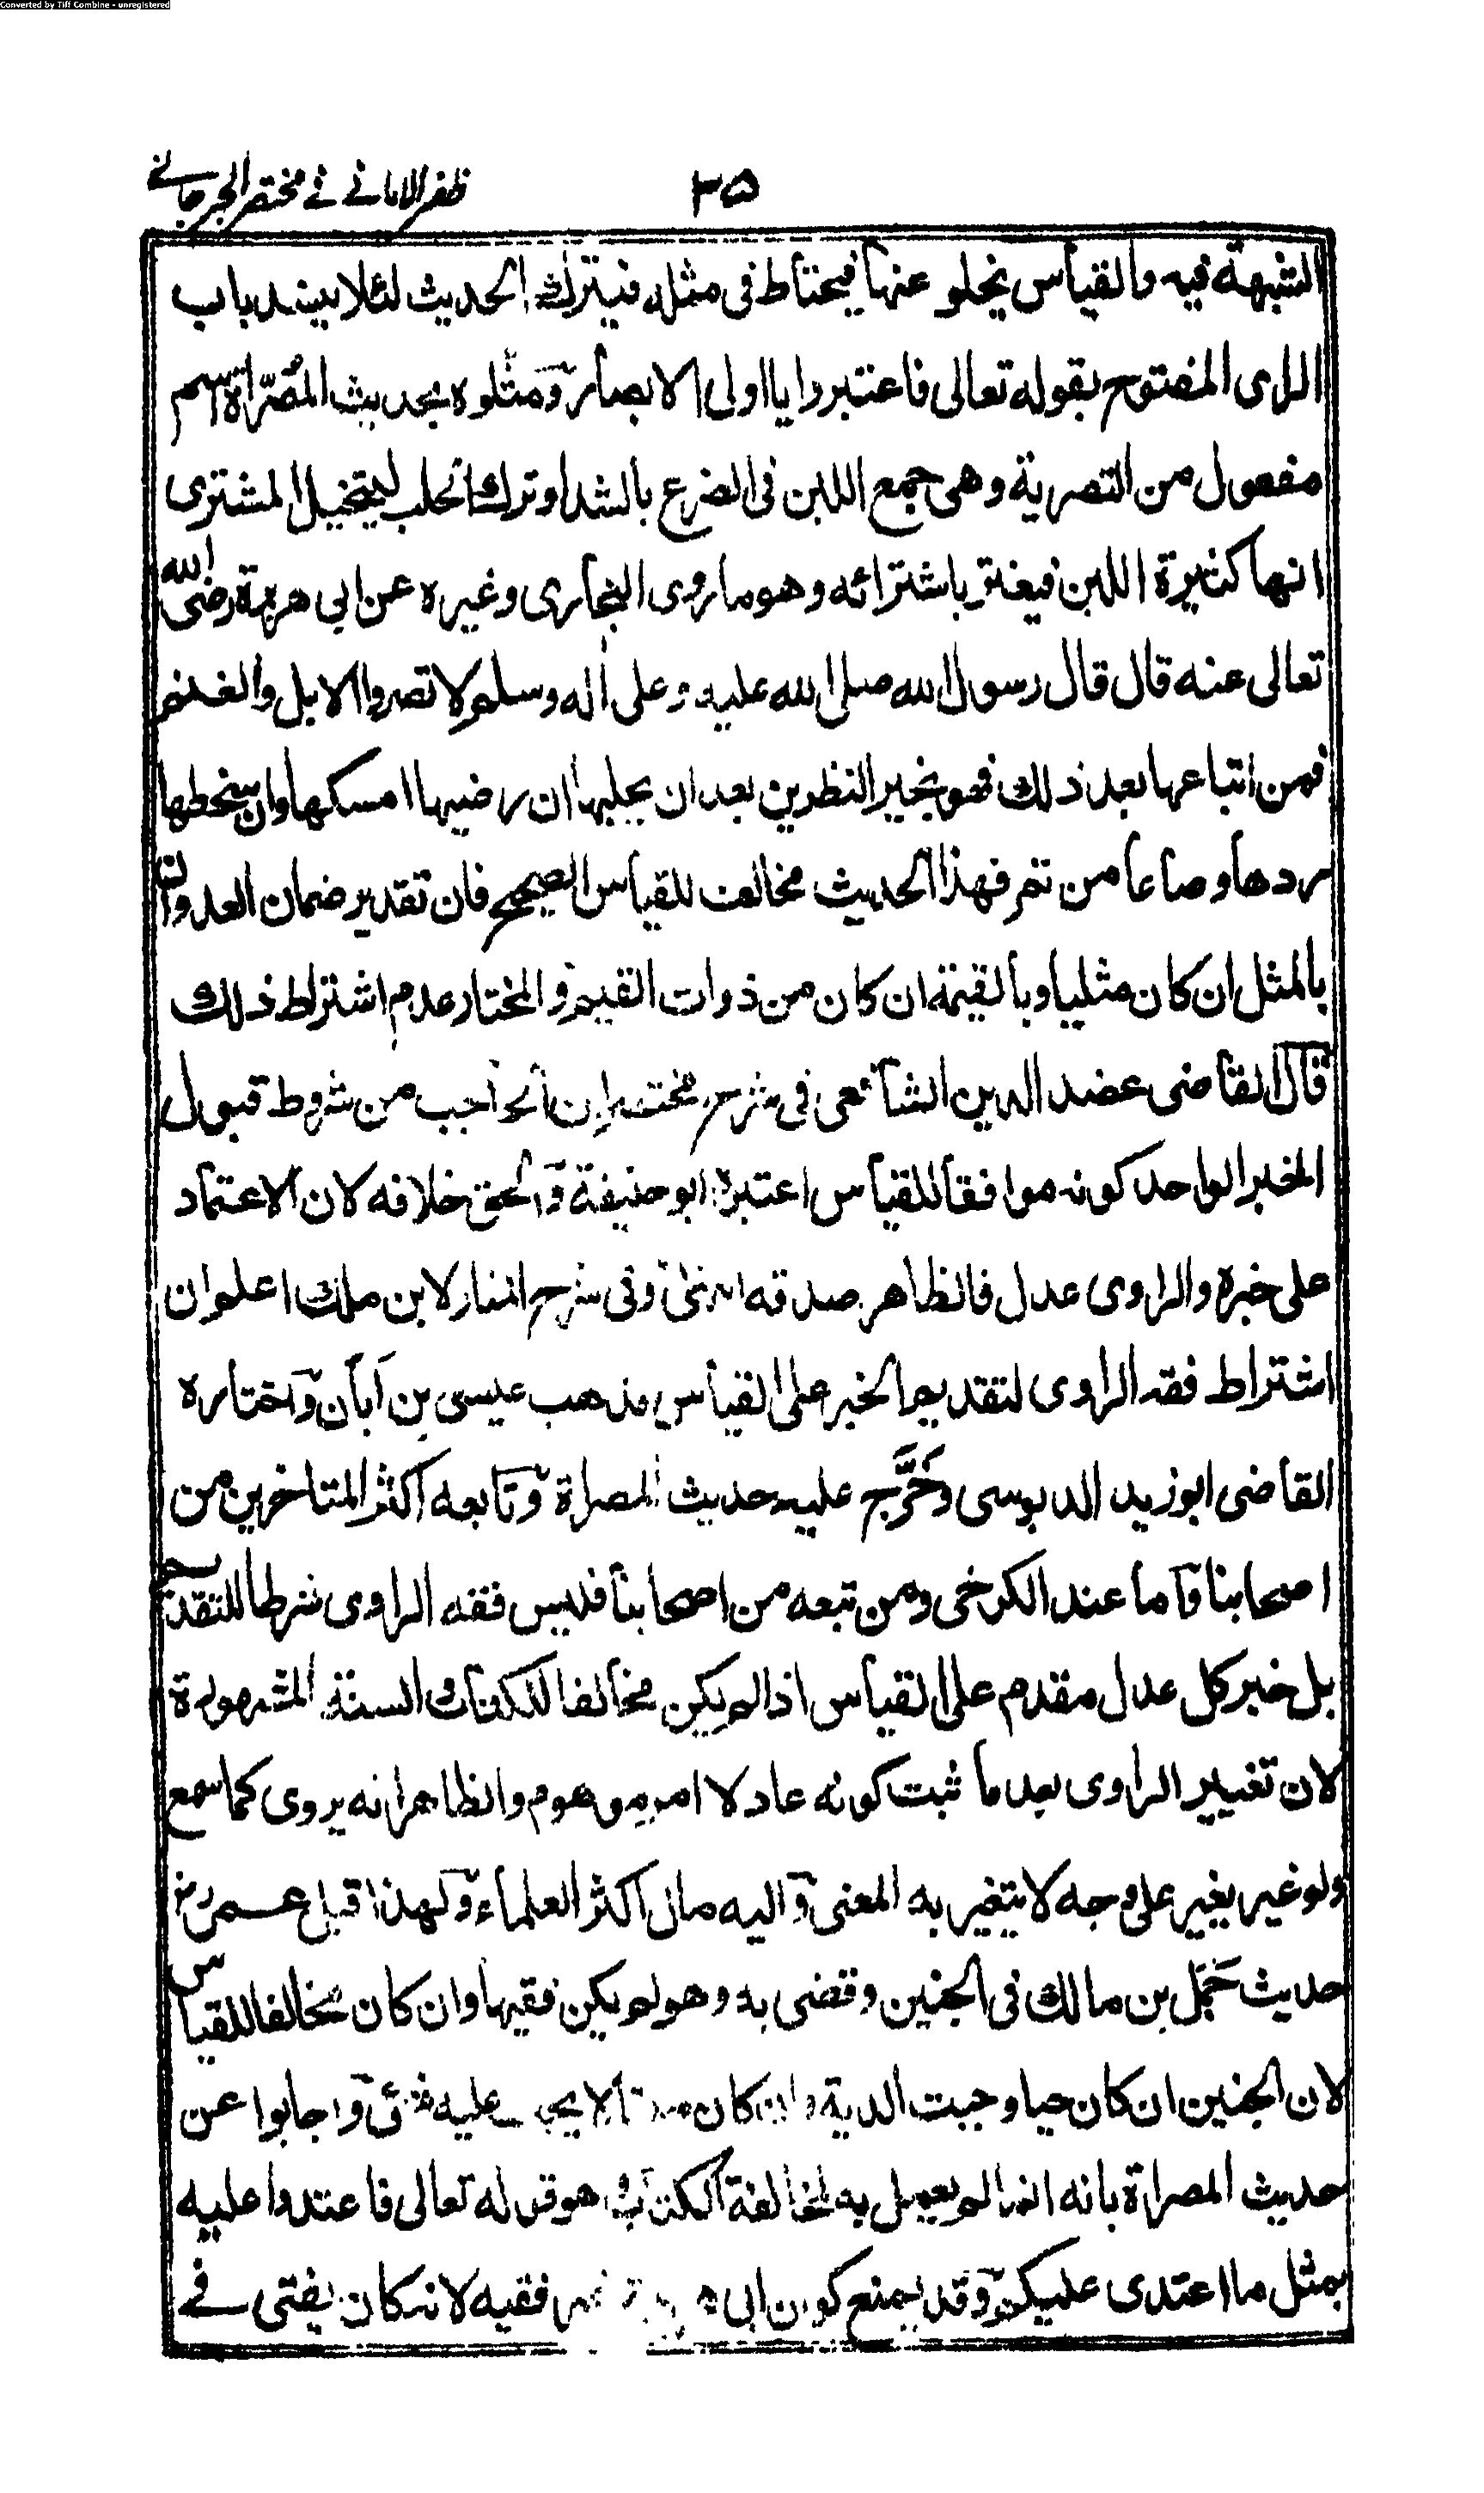 Converted by Tiff Combine - unregistered
ظفر الامانی فی مختصر الجرجانی
۳۵
الشبهة فيه والقياس يخلو عنها فيحتاط فى مثله فيترك الحديث لئلا ينسد باب
الراى المفتوح بقوله تعالى فاعتبروا يا اولى الابصار ومثلوه بحديث المُصَرّاة اسم
مفعول من التصرية وهى جمع اللبن فى الضرع بالشد او ترك الحلب ليتخيل المشترى
انها كثيرة اللبن فيغتر باشترائه وهو ما روى البخارى وغيره عن ابى هريرة رضى الله
تعالى عنه قال قال رسول الله صلى الله عليه وعلى اله وسلم لا تصروا الابل والغنم
فمن ابتاعها بعد ذلك فهو بخير النظرين بعد ان يحلبها ان رضيها امسكها وان سخطها
ردها وصاعا من تمر فهذا الحديث مخالف للقياس الصحيح فان تقدير ضمان العدوان
بالمثل ان كان مثليا وبالقيمة ان كان من ذوات القيم والمختار عدم اشتراط ذلك
قال القاضى عضد الدين الشافعى فى شرح مختصر ابن الحاجب من شروط قبول
الخبر الواحد كونه موافقا للقياس اعتبره ابو حنيفة والحق خلافه لان الاعتماد
على خبره والراوى عدل فالظاهر صدقه انتهى وفى شرح المنار لابن ملك اعلم ان
اشتراط فقه الراوى لتقديم الخبر على القياس مذهب عيسى بن اَبان واختاره
القاضى ابو زيد الدبوسى وخَرَّج عليه حديث المصراة وتابعه اكثر المتاخرين من
اصحابنا واما عند الكرخى ومن تبعه من اصحابنا فليس فقه الراوى شرطا للتقديم
بل خبر كل عدل مقدم على القياس اذا لم يكن مخالفا للكتاب والسنة المشهورة
لان تغيير الراوى بعد ما ثبت كونه عادلا امر موهوم والظاهر انه يروى كما سمع
ولو غير يغير على وجه لا يتغير به المعنى واليه مال اكثر العلماء ولهذا قبل عمر رض
حديث حَمَل بن مالك فى الجنين وقضى به وهو لم يكن فقيها وان كان مخالفا للقياس
لان الجنين ان كان حيا وجبت الدية وان كان ميتا لا يجب عليه شئ واجابوا عن
حديث المصراة بانه انما لم يعمل به لمخالفة الكتاب وهو قوله تعالى فاعتدوا عليه
بمثل ما اعتدى عليكم وقد يمنع كون ابى فقيه لانه كان يفتى فے